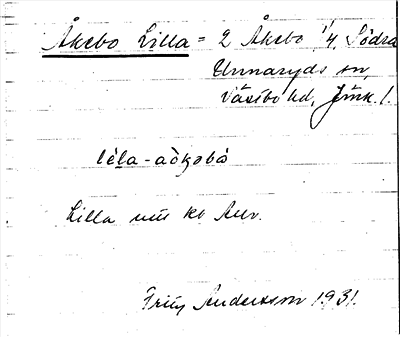 Åkebo Lilla = 2 Åkebo 1/4, Södra
Unnaryds sn,
Västbo hd, Jönk. l.
lila-aökabo
Lilla
Fritz Andersson 1931.